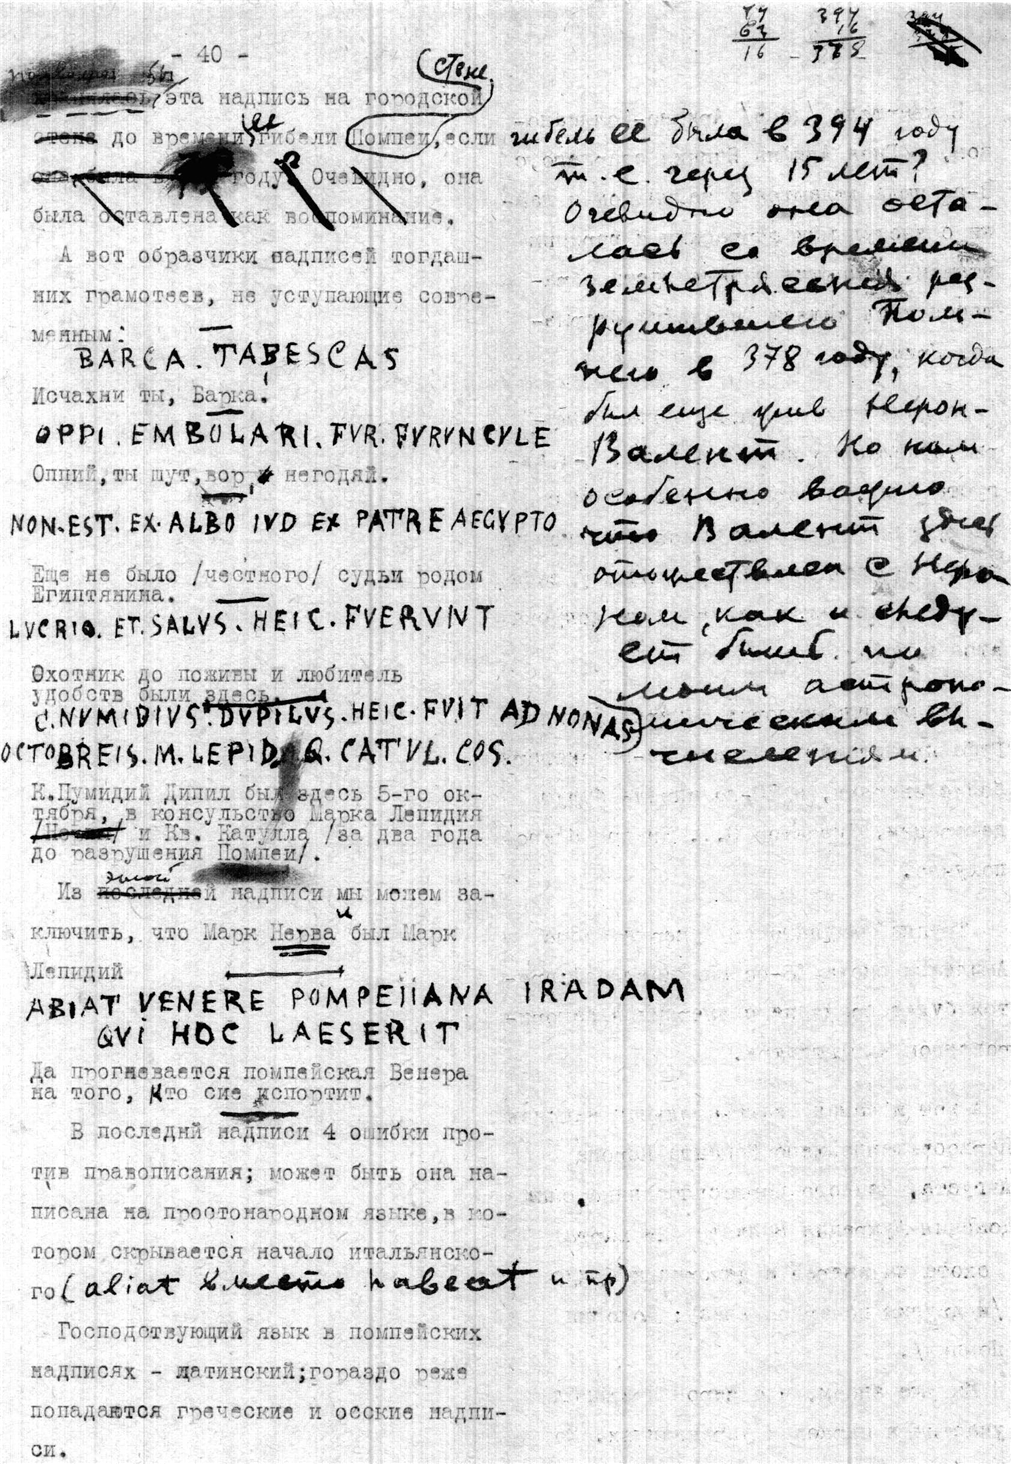 - 40 -
79
63
16
394
16
378
стене
хранилась эта надпись на городской
стене до времени ее гибели Помпеи, если гибель ее была в 394 году
т. е. через 15 лет?
она была в году? Очевидно, она
была оставлена как воспоминание.
Очевидно она оста-
лась со времени
землетрясения раз-
рушившего Пом-
пею в 378 году, когда
был еще жив Нерон-
Валент. Но нам
особенно важно
что Валент здесь
отождествлен с Неро
ном, как и следу-
ет быть по
моим астроно-
мическим вы-
числениям.
А вот образчики надписей тогдаш-
них грамотеев, не уступающие совре-
менным:
BARCA. TABESCAS
Исчахни ты, Барка!
OPPI. EMBOLARI. FVR. FVRVNCVLE
Оппий, ты шут, вор, и негодяй.
NON. EST. EX. ALBO IVD EX PATRE AEGYPTO
Еще не было /честного/ судьи родом
Египтянина.
LVCRIO. ET. SALVS. HEIC. FVERVNT
Охотник до поживы и любитель
удобств были здесь.
C. NVMIDIVS. DVPILVS. HEIC. FVIT AD NONAS
OCTOBREIS. M. LEPID. Q. CATVL. COS.
К. Нумидий Дипил был здесь 5-го ок-
тября, в консульство Марка Лепидия
и Кв. Катулла /за два года
до разрушения Помпеи/.
этой
Из последней надписи мы можем за-
ключить, что Марк Нерва и был Марк
Лепидий
ABIAT VENERE POMPEIIANA IRADAM
QVI HOC LAESERIT
Да прогневается помпейская Венера
на того, кто сие испортит.
В последнй надписи 4 ошибки про-
тив правописания; может быть она на-
писана на простонародном языке, в ко-
тором скрывается начало итальянско-
го (abiat вместо habeat и пр)
Господствующий язык в помпейских
надписях - латинский; гораздо реже
попадаются греческие и осские надпи-
си.